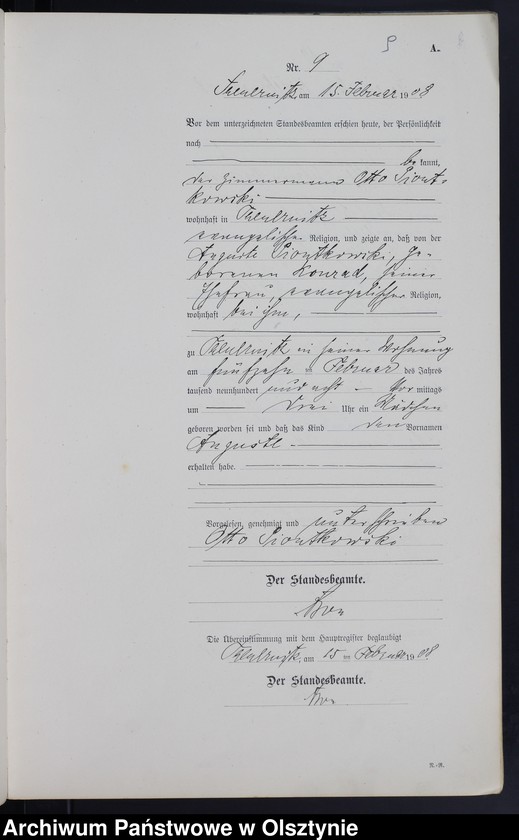 9
A.
Nr. 9
am 15. Februar 1908
Vor dem unterzeichneten Standesbeamten erschien heute, der Persönlichkeit
nach
be kannt,
der Zimmermann Otto Piont-
kowski
wohnhaft in
evangelischer Religion, und zeigte an, daß von der
Auguste Piontkowski, ge-
borenen Konrad, seiner
Ehefrau, evangelischer Religion,
wohnhaft bei ihm,
zu in seiner Wohnung
am fünfzehn ten Februar des Jahres
tausend neunhundert und acht Vor mittags
um drei Uhr ein Mädchen
geboren worden sei und daß das Kind den Vornamen
Auguste
erhalten habe.
Vorgelesen, genehmigt und unterschrieben
Otto Piontkowski
Der Standesbeamte.
Die Übereinstimmung mit dem Hauptregister beglaubigt
am 15 ten Februar 1908.
Der Standesbeamte.
Archiwum Państwowe w Olsztynie